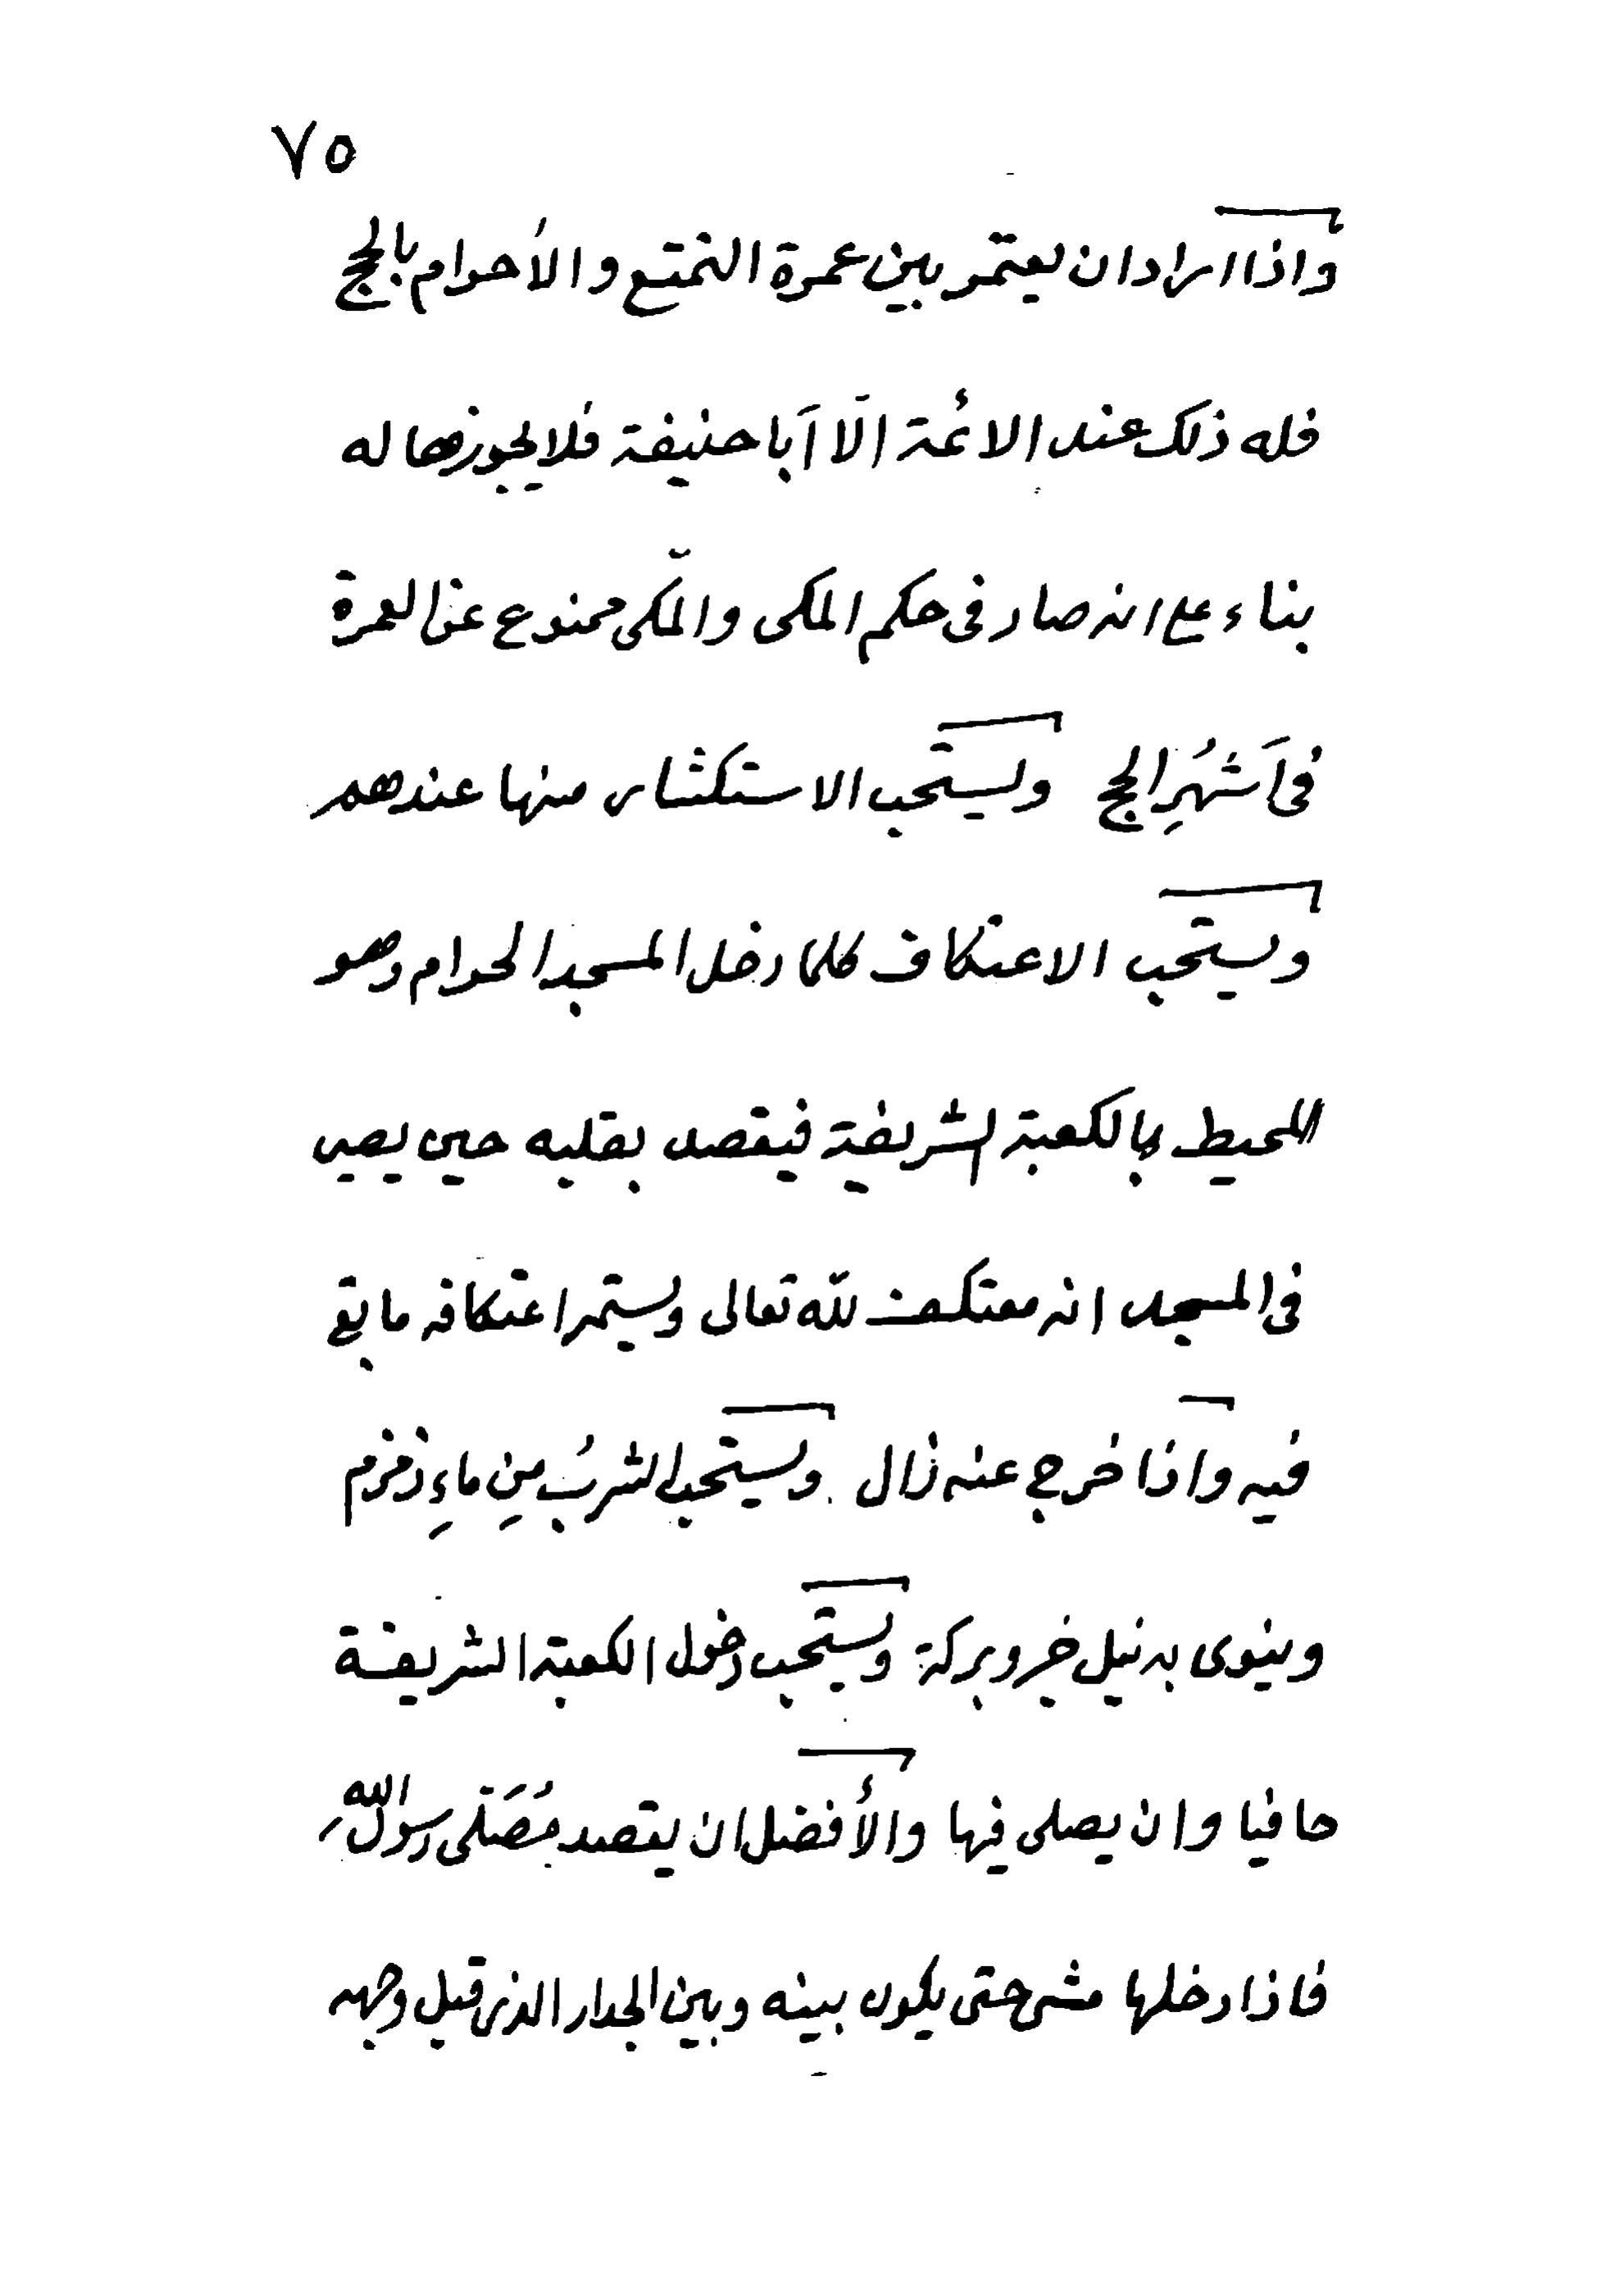 ٧٥
واذا اراد ان يعتمر بين عمرة التمتع والأحرام بالحج
فله ذلك عند الائمة الّا اَبا حنيفة فلا يجوزها له
بناء على انه صار فى حكم المكى والمكّى ممنوع عن العمرة
فى اَشهُرِ الحج ويستحب الاستكثار منها عندهم
ويستحب الاعتكاف كلما دخل المسجد الحرام وهو
المحيط بالكعبة الشريفة فيقصد بقلبه حين يصير
فى المسجد انه معتكف للّه تعالى ويستمر اعتكافه ما بقى
فيه واذا خرج عنه زال ويستحب الشربُ مِن ماءِ زمزم
وينوى به نيل خير وبركة ويستحب دخول الكعبة الشريفة
حافيا وان يصلى فيها والأفضل ان يقصد مُصَلى رسول الله
فاذا دخلها مشى حتى يكون بينه وبين الجدار الذى قبل وجهه